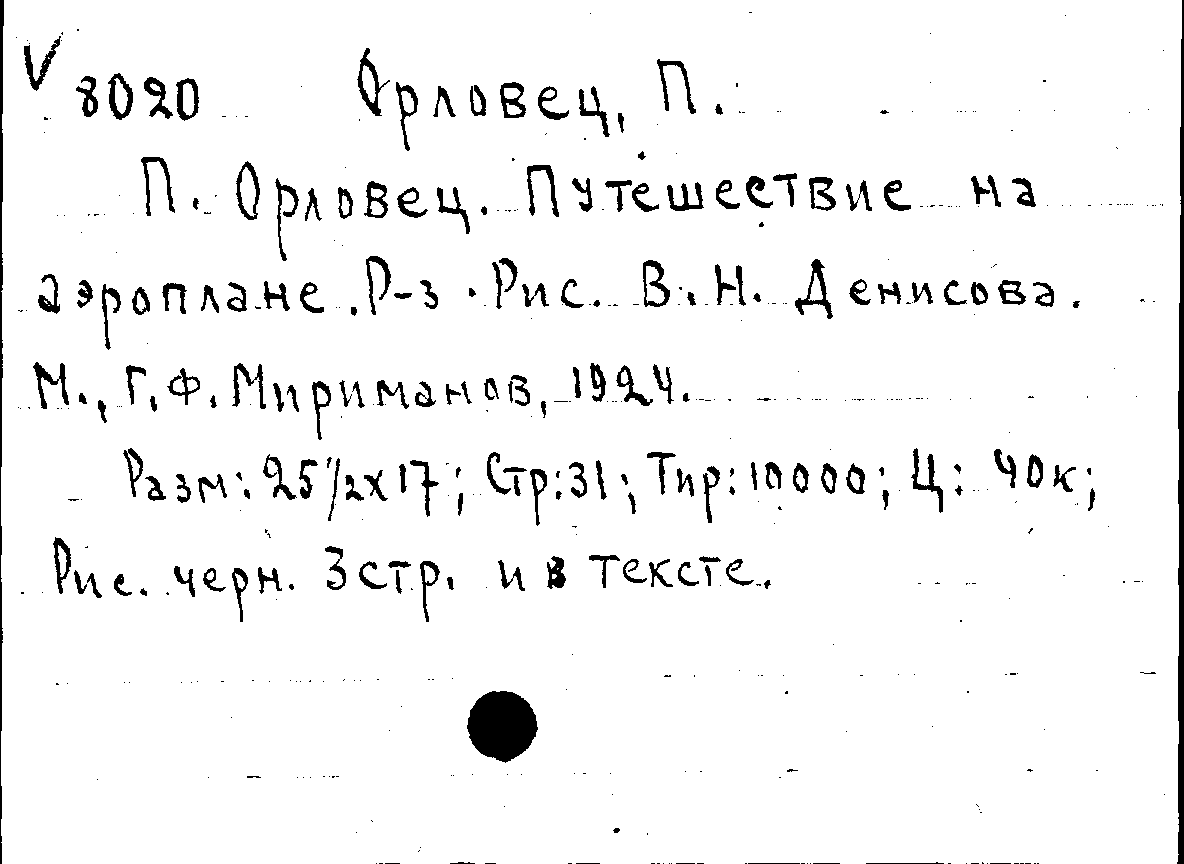 V 8020 Орловец, П.
П. Орловец. Путешествие на
аэроплане. Р-з. Рис. В. Н. Денисова.
М., Г. Ф. Мириманов, 1924.
Разм: 25 1/2 х 17; Стр: 31; Тир: 10000; Ц: 40к;
Рис. черн. 3 стр. и в тексте.